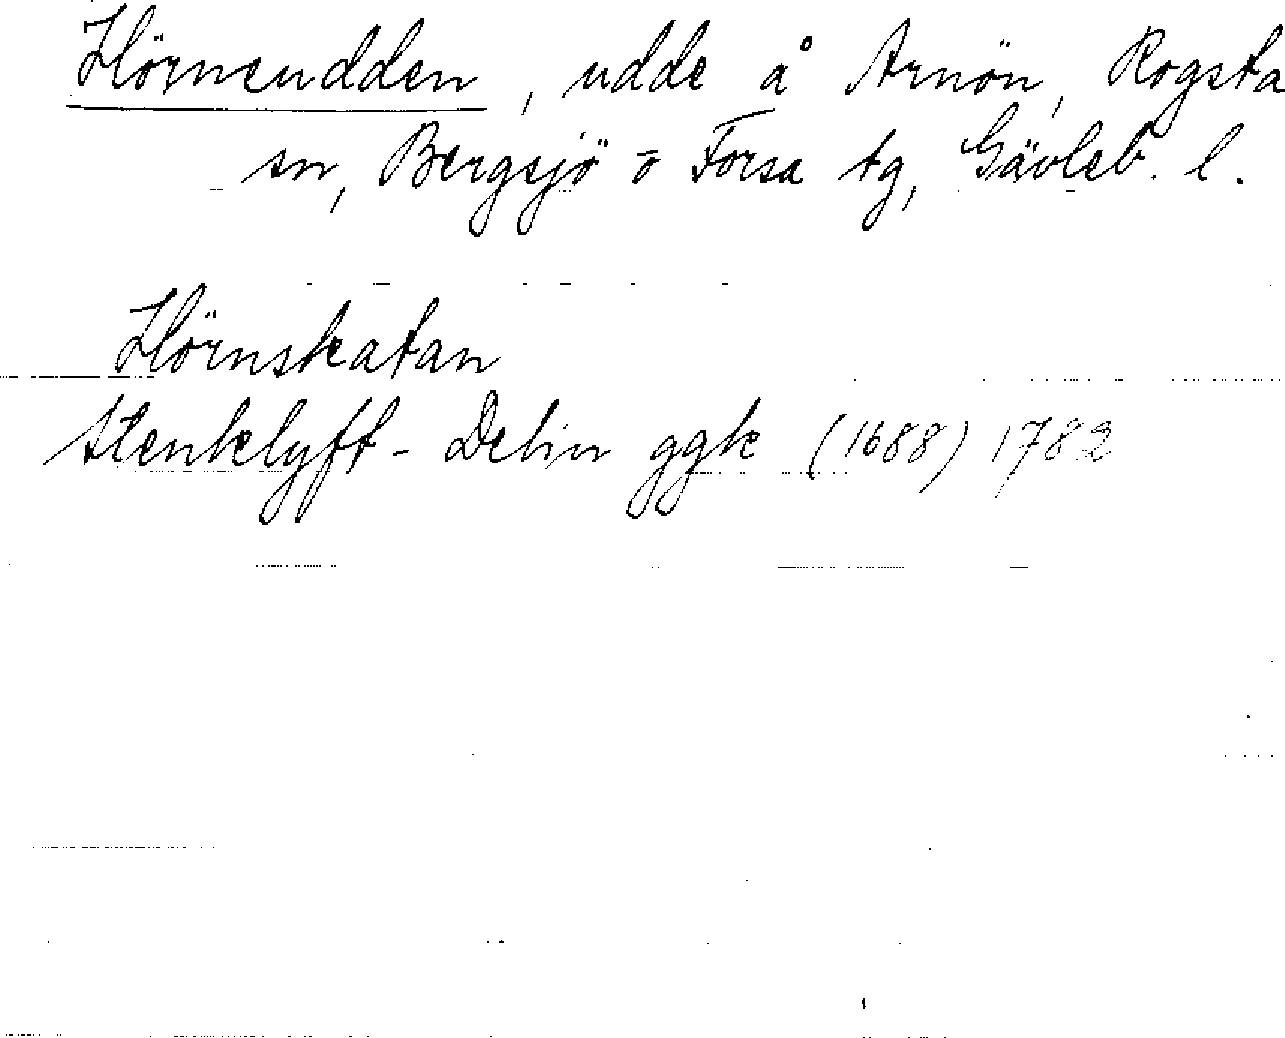 Hörneudden, udde å Arnön, Rogsta
sn, Bergsjö o Forsa tg, Gävleb. l.
Hörnskatan
Stenklyft - Delin ggk (1688) 1782